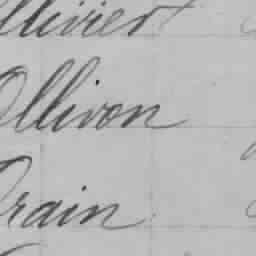 Ollivier
Ollivon
Orain